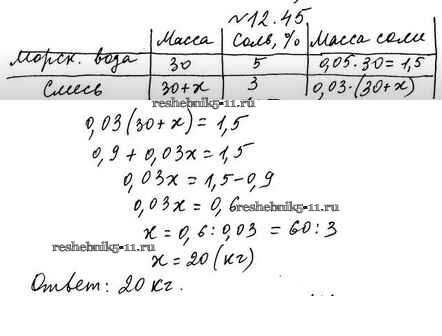 №12.45
Масса Соль, % Масса соли
Морск. вода 30 5 0,05·30=1,5
Смесь 30+x 3 0,03·(30+x)
reshebnik5-11.ru
0,03(30+x)=1,5
0,9+0,03x=1,5
0,03x=1,5-0,9
0,03x=0,6
reshebnik5-11.ru
x=0,6:0,03=60:3
reshebnik5-11.ru
x=20(кг)
Ответ: 20 кг.
...